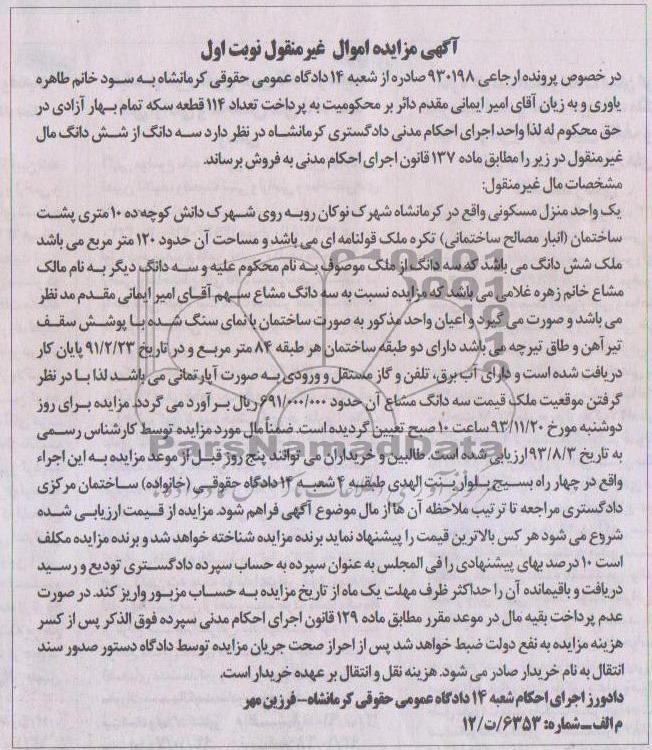 آگهی مزایده اموال غیرمنقول نوبت اول
در خصوص پرونده ارجاعی ۹۳۰۱۹۸ صادره از شعبه ۱۴ دادگاه عمومی حقوقی کرمانشاه به سود خانم طاهره
یاوری و به زیان آقای امیر ایمانی مقدم دائر بر محکومیت به پرداخت تعداد ۱۱۴ قطعه سکه تمام بهار آزادی در
حق محکوم له لذا واحد اجرای احکام مدنی دادگستری کرمانشاه در نظر دارد سه دانگ از شش دانگ مال
غیرمنقول در زیر را مطابق ماده ۱۳۷ قانون اجرای احکام مدنی به فروش برساند.
مشخصات مال غیرمنقول:
یک واحد منزل مسکونی واقع در کرمانشاه شهرک نوکان روبه روی شهرک دانش کوچه ده ۱۰ متری پشت
ساختمان (انبار مصالح ساختمانی) نکره ملک قولنامه ای می باشد و مساحت آن حدود ۱۲۰ متر مربع می باشد
ملک شش دانگ می باشد که سه دانگ از ملک موصوف به نام محکوم علیه و سه دانگ دیگر به نام مالک
مشاع خانم زهره غلامی می باشد که مزایده نسبت به سه دانگ مشاع سهم آقای امیر ایمانی مقدم مد نظر
می باشد و صورت می گیرد و اعیان واحد مذکور به صورت ساختمان با نمای سنگ شده با پوشش سقف
تیر آهن و طاق تیرچه می باشد دارای دو طبقه ساختمان هر طبقه ۸۴ متر مربع و در تاریخ ۹۱/۲/۲۳ پایان کار
دریافت شده است و دارای آب برق، تلفن و گاز مستقل و ورودی به صورت آپارتمانی می باشد لذا با در نظر
گرفتن موقعیت ملک قیمت سه دانگ مشاع آن حدود ۶۹۱/۰۰۰/۰۰۰ ریال بر آورد می گردد. مزایده برای روز
دوشنبه مورخ ۹۳/۱۱/۲۰ ساعت ۱۰ صبح تعیین گردیده است. ضمناً مال مورد مزایده توسط کارشناس رسمی
به تاریخ ۹۳/۸/۳ ارزیابی شده است. طالبین و خریداران می توانند پنج روز قبل از موعد مزایده به این اجراء
واقع در چهار راه بسیج بلوار بنت الهدی طبقه ۴ شعبه ۱۴ دادگاه حقوقی (خانواده) ساختمان مرکزی
دادگستری مراجعه تا ترتیب ملاحظه آن ها از مال موضوع آگهی فراهم شود. مزایده از قیمت ارزیابی شده
شروع می شود هر کس بالاترین قیمت را پیشنهاد نماید برنده مزایده شناخته خواهد شد و برنده مزایده مکلف
است ۱۰ درصد بهای پیشنهادی را فی المجلس به عنوان سپرده به حساب سپرده دادگستری تودیع و رسید
دریافت و باقیمانده آن را حداکثر ظرف مهلت یک ماه از تاریخ مزایده به حساب مزبور واریز کند. در صورت
عدم پرداخت بقیه مال در موعد مقرر مطابق ماده ۱۲۹ قانون اجرای احکام مدنی سپرده فوق الذکر پس از کسر
هزینه مزایده به نفع دولت ضبط خواهد شد پس از احراز صحت جریان مزایده توسط دادگاه دستور صدور سند
انتقال به نام خریدار صادر می شود. هزینه نقل و انتقال بر عهده خریدار است.
دادورز اجرای احکام شعبه ۱۴ دادگاه عمومی حقوقی کرمانشاه- فرزین مهر
م الف ــ شماره: ۶۳۵۳/ت/۱۲
ParsNamadData